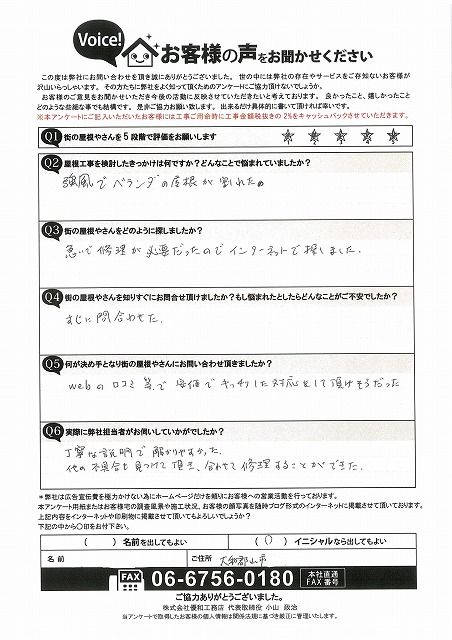 Voice! お客様の声をお聞かせください
この度は弊社にお問い合わせを頂き誠にありがとうございました。 世の中には弊社の存在やサービスをご存知ないお客様が
沢山いらっしゃいます。その方たちに弊社をよく知って頂くためのアンケートにご協力頂けないでしょうか。
お客様のご意見をお聞かせいただき今後の活動に反映させていただきたいと考えております。 良かったこと、嬉しかったこと
どのような些細な事でも結構です。 是非ご協力お願い致します。 出来るだけ具体的に書いて頂ければ幸いです。
※本アンケートにご記入いただいたお客様には工事ご用命時に工事金額税抜きの 2%をキャッシュバックさせていただきます。
Q1 街の屋根やさんを 5 段階で評価をお願いします ★ ★ ★ ★ ★
Q2 屋根工事を検討したきっかけは何ですか？どんなことで悩まれていましたか？
強風でベランダの屋根が割れた為
Q3 街の屋根やさんをどのように探しましたか？
急いで修理が必要だったのでインターネットで探しました.
Q4 街の屋根やさんを知りすぐにお問合せ頂けましたか？もし悩まれたとしたらどんなことがご不安でしたか？
すぐに問合わせた.
Q5 何が決め手となり街の屋根やさんにお問い合わせ頂きましたか？
webの口コミ等で安価でキッチリした対応をして頂けそうだった
Q6 実際に弊社担当者がお伺いしていかがでしたか？
丁寧な説明で解かりやすかった.
他の不具合も見つけて頂き、合わせて修理することができた.
＊弊社は広告宣伝費を極力かけない為にホームページだけを頼りにお客様への営業活動を行っております。
本アンケート用紙またはお客様宅の調査風景や施工状況、お客様の顔写真を随時ブログ形式のインターネットに掲載させて頂いております。
上記内容をインターネットや印刷物に掲載させて頂いてもよろしいでしょうか？
下記の中から〇印をお付下さい。
（ ）名前を出してもよい （〇）イニシャルなら出してもよい
名前 ご住所 大和郡山市
FAX 06-6756-0180 本社直通 FAX 番号
ご協力ありがとうございました。
株式会社優和工務店 代表取締役 小山 政治
当アンケートで取得したお客様の個人情報は関係法規に基づき厳正に管理いたします。